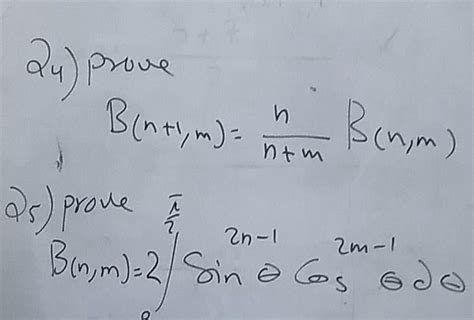 24) prove
B(n+1,m) = n/(n+m) B(n,m)
25) prove
B(n,m) = 2 ∫₀^(π/2) Sin^(2n-1) θ Cos^(2m-1) θ dθ